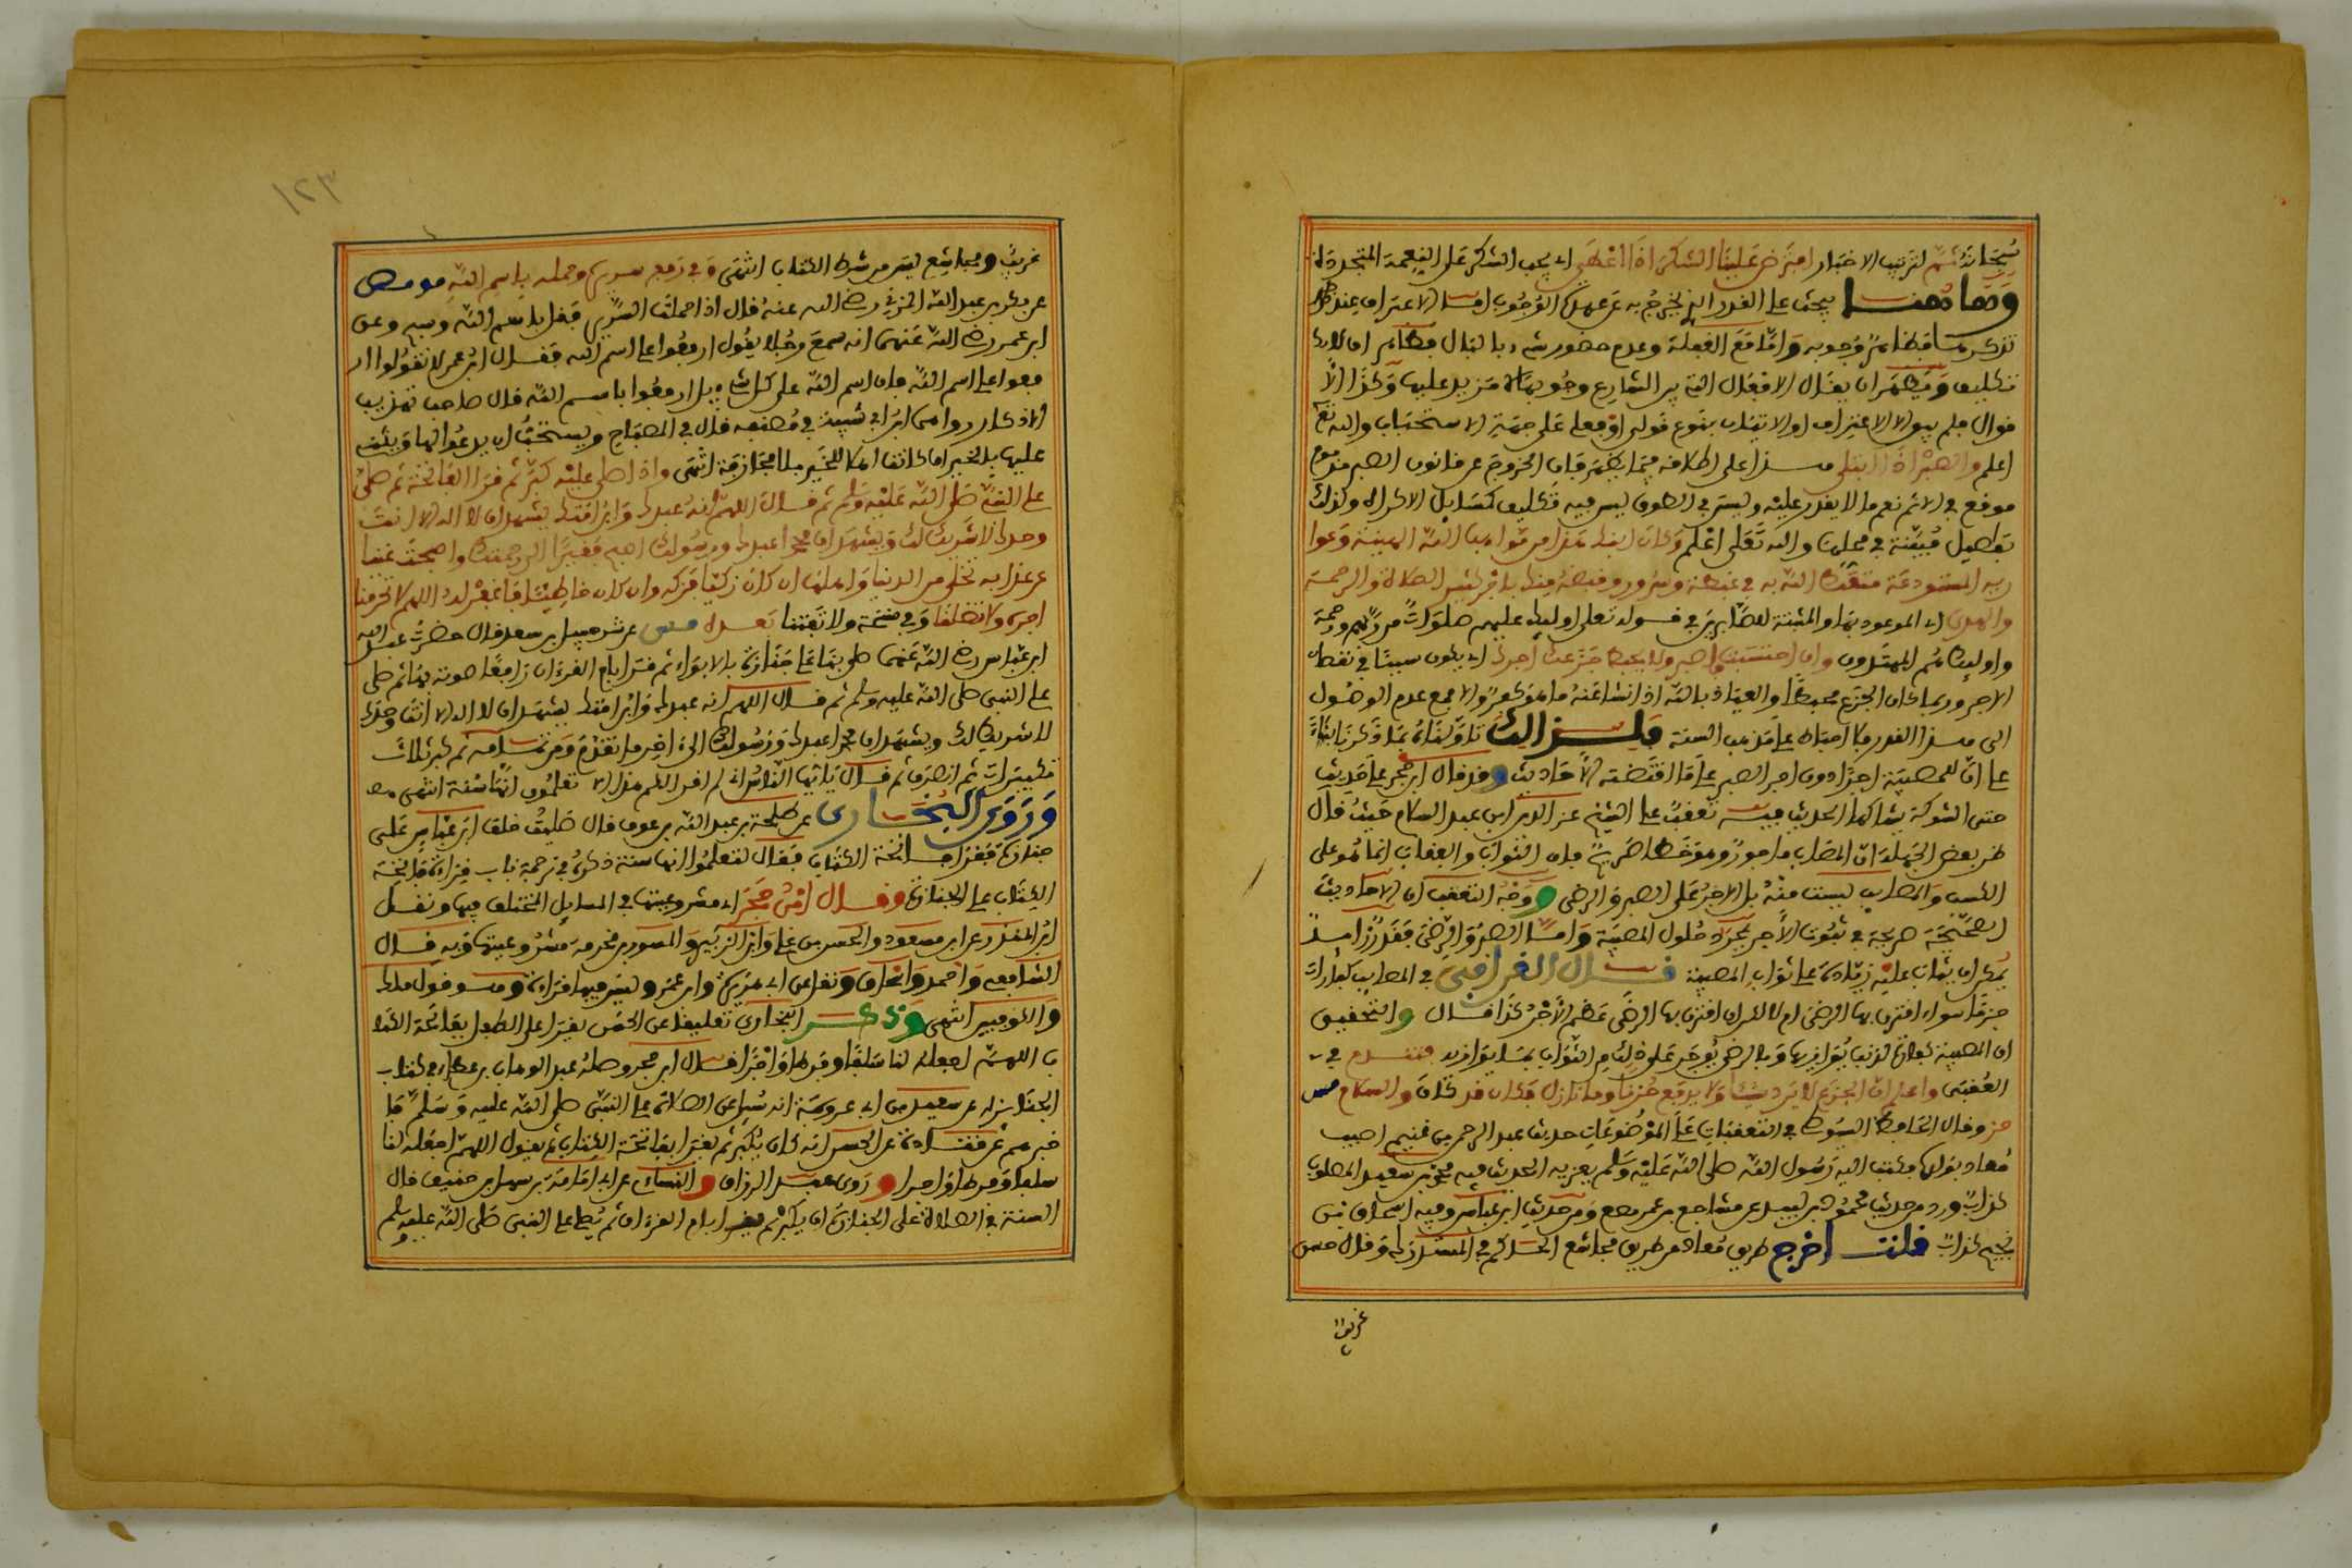 سُبحانَهُ ثمّ لترتيب الاخبار افترَض علينا الشكر اذا اعْطَى اي يجب الشكر على النعمة المتجددة
وهاهنا بحث على القدر الذي يخرج به عن عهدة الوُجُوب
تكليف ويظهر ان يقال الافعال التي بيّن الشارع وجُوبها لا مزيد عليها وكذا الا
قوال فلم يبق الا الاعتراف او الاتيان بنوع قولي او فعلي على جهة الاستحباب والله تعلى
اعلم والصبر اذا ابتلى هذا على اطلاقه
موقع في الاثم نعم ما لا يقدر عليه وليس في الطوق ليس فيه تكليف كمسائل الاكراه ولذلك
تفاصيل مُبيّنة في محلها والله تعلى اعْلم وكان ابنك هذا من مواهب الله الهنيئة وعوا
ريه المستودعة متّعك الله به في غبطة وسرور وقبضه منك باجر كثير الصلاة والرحمة
والهدى اي الموعود بها والمثبتة للصابرين في قوله تعلى اوليك عليهم صلوات من ربهم ورحمة
واوليك هُم المهتدون وان احتسبته فاصبر ولا يحبط جزعك اجرك اي يكون سببا في نقصان
الاجر وربما كان الجزع محبطا والعياذ بالله اذا نشا عنه ما هو كفر والا فمع عدم الوصُول
الى هذا القدر فلا احباط على مذهب السنة فلذلك تاولناه بما ذكرنا بناءً
على ان للمصيبة اجرا دون اجر الصبر على ما اقتضته الاحاديث وقد قال ابن حجر على حديث
حتى الشوكة يشاكها الحديث فيه تعقب على الشيخ عز الدين ابن عبد السلام حيث قال
ظن بعض الجهلة ان المصاب ماجور وهو خطا صريح فان الثواب والعقاب انما هُو على
الكسب والمصايب ليست منه بل الاجر على الصبر والرضى ووجه التعقب ان الاحاديث
الصحيحة صريحة في ثبوت الاجر بمجرد حلول المصيبة واما الصبر والرضى فقدر زايد
يمكن ان يثاب عليه زيادة على ثواب المصيبة قال القرافي في المصايب كفارات
جزما سواء اقترن بها الرضى ام لا لكن ان اقترن بها الرضى عظم الاجر كذا قال والتحقيق
ان المصيبة كفارة لذنب يوازيها وبالرضى يوجر على ذلك من الثواب بما يوازيه
العُقبى واعلم ان الجزع لا يرد شيئا ولا يدفع حُزنا وما نازل فكان قد كان والسلام مس
مر وقال الحافظ السيُوطي في التعقبات على الموضوعات حديث عبد الرحمن بن غنم اصيب
مُعاذ بولد فكتب اليه رَسُول الله صلى الله عليه وسلم يعزيه الحديث فيه محمد بن سعيد المصلوب
كذاب وورد من حديث محمُود بن لبيد عن مجاشع بن عمر وضع ومن حديث ابن عباس وفيه اسحاق بن
نجيح كذاب قلت اخرج طريق مُعاذ من طريق مجاشع الحاكم في المستدرك وقال حسن
غريب
١٢٣
غريب ومجاشع ليس من شرط الكتاب انتهى وفي رفع سريره وحمله باسم الله مو مص
عن بكر بن عبد الله المزني رضي الله عنه قال اذا حملت السرير فقل باسم الله وسبح وعن
ابن عمر رضي الله عنهما انه سمع رجُلا يقُول ارفعوا على اسم الله فقال ابن عمر لا تقولوا ار
فعوا على اسم الله فان اسم الله على كل شيء بل ارفعُوا باسم الله قال صاحب تهذيب
الاذكار رواهما ابن ابي شيبة في مُصنفه قال في المصباح ويستحبُّ ان يدعُوا لها ويثني
عليها بالخير ان كانت اهلا للخير بلا مجازفة انتهى واذا صلى عليه كبّر ثم قرا الفاتحة ثم صلى
على النبي صلى الله عليه وسلم ثم قال اللهم انه عبدك وابن امتك يشهد ان لا اله الا انت
وحدك لا شريك لك ويشهد ان محمدا عبدك ورسُولك اصبح فقيرا الى رحمتك واصبحت غنيا
عن عذابه تخلى من الدنيا واهلها ان كان زكيّا فزكه وان كان خاطيئا فاغفر له اللهم لا تحرمنا
اجره ولا تضلنا وفي نسخة ولا تفتنا بعده مس عن شرحبيل بن سعد قال حضرتُ عبد الله
ابن عباس رضي الله عنهما صلى بنا على جنازة بالابواء ثم قرا بام القرءان رافعا صوته بها ثم صلى
على النبي صلى الله عليه وسلم ثم قال اللهم انه عبدك وابن امتك يشهد ان لا اله الا انت وحدك
لا شريك لك ويشهد ان محمدا عبدك ورسُولك الى اخر ما تقدّم ومن تمامه ثم كبر ثلاث
تكبيرات ثم انصرف ثم قال يا ايها الناس اني لم اقرا الا لتعلمُوا انها سُنة انتهى
وروى البُخاري عن طلحة بن عبد الله بن عوف قال صليت خلف ابن عباس على
جنازة فقرا فاتحة الكتاب فقال لتعلمُوا انها سنة ذكرهُ في ترجمة باب قراءة فاتحة
الكتاب على الجنازة وقال ابن حجر اي مشروعيتها في المسايل المختلف فيها ونقل
ابن المنذر عن ابن مسعود والحسن بن علي وابن الزبير والمسور بن مخرمة مشروعيتها وبه قال
الشافعي واحمد واسحاق ونقل عن ابي هريرة وابن عمر وليس فيها قراءة وهو قول مالك
والكوفيين انتهى وذكر البخاري تعليقا عن الحسن يقرا على الطفل بفاتحة الكتا
ب اللهم اجعله لنا سلفا وفرطا واجرا قال ابن حجر وصله عبد الوهاب بن عطاء في كتاب
الجنايز له عن سعيد بن ابي عروبة انه سُئل عن الصلاة على النبي صلى الله عليه وسلم فا
خبرهم عن قتادة عن الحسن انه كان يُكبر ثم يقرا بفاتحة الكتاب ثم يقول اللهم اجعله لنا
سلفا وفرطا واجرا وروى عبد الرزاق والنسائي عن ابي امامة بن سهل بن حنيف قال
السنة في الصلاة على الجنازة ان يكبر ثم يقرا بام القرءان ثم يُصلي على النبي صلى الله عليه وسلم